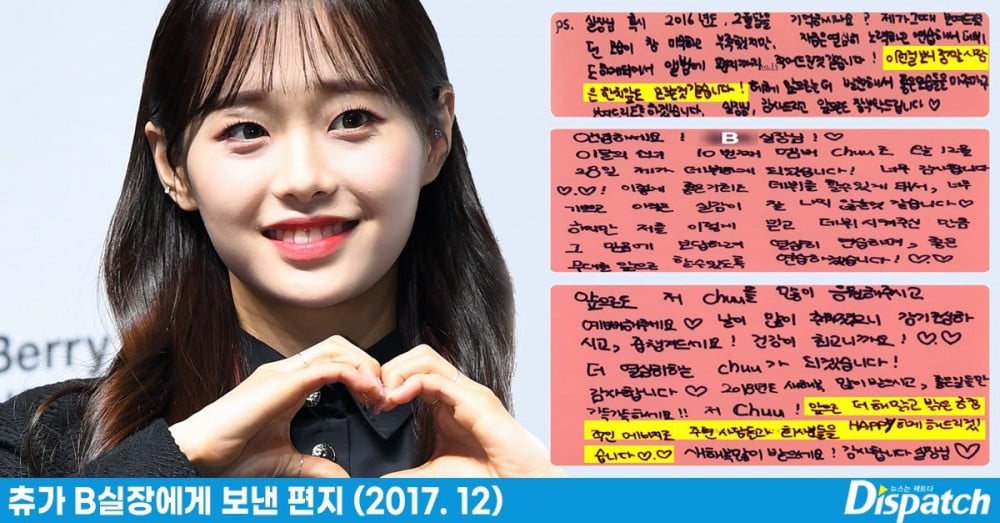 Berry
ps. 실장님 혹시 2016년도, 2월달을 기억하시나요? 제가 그때 보여드렸
던 모습이 참 부족했지만, 열심히 노력하고 연습해서
이런걸 보면 정말 사람
은 한치앞도 모르는것 같습니다! 앞으로 더 발전해서 좋은모습을
보여드리도록 하겠습니다. 실장님, 감사드리고 앞으로 잘부탁드립니다 ♡
안녕하세요! B 실장님!♡
이달의 소녀 10번째 멤버 Chuu로 이달 12월
28일 제가 데뷔하게 되었습니다! 너무 감사합니다
♡.♡! 이렇게 좋은기회로 데뷔를 할수있게 돼서, 너무
기쁘고 아직은 실감이 잘 나지 않는것 같습니다♡
하지만 저를 이렇게 믿고 데뷔시켜주신 만큼
그 믿음에 보답하려 열심히 연습하며, 좋은
무대를 앞으로 할수있도록 연습하겠습니다! ♡.♡
앞으로도 저 Chuu를 많이 응원해주시고
예뻐해주세요 ♡ 날이 많이 추워졌으니 감기조심하
시고, 옷챙겨드세요! 건강이 최고니까요! ♡♡
더 열심히하는 Chuu가 되겠습니다!
감사합니다 ♡ 2018년도 새해복 많이받으시고, 좋은일들만
가득가득하세요!! 저 Chuu! 앞으로 더 해맑고 밝은 긍정
적인 에너지로 주변 사람들과 회사분들을 HAPPY하게 해드리겠
습니다♡.♡ 새해복많이 받으세요! 감사합니다 실장님♡
츄가 B실장에게 보낸 편지 (2017. 12)
뉴스는 팩트다
Dispatch